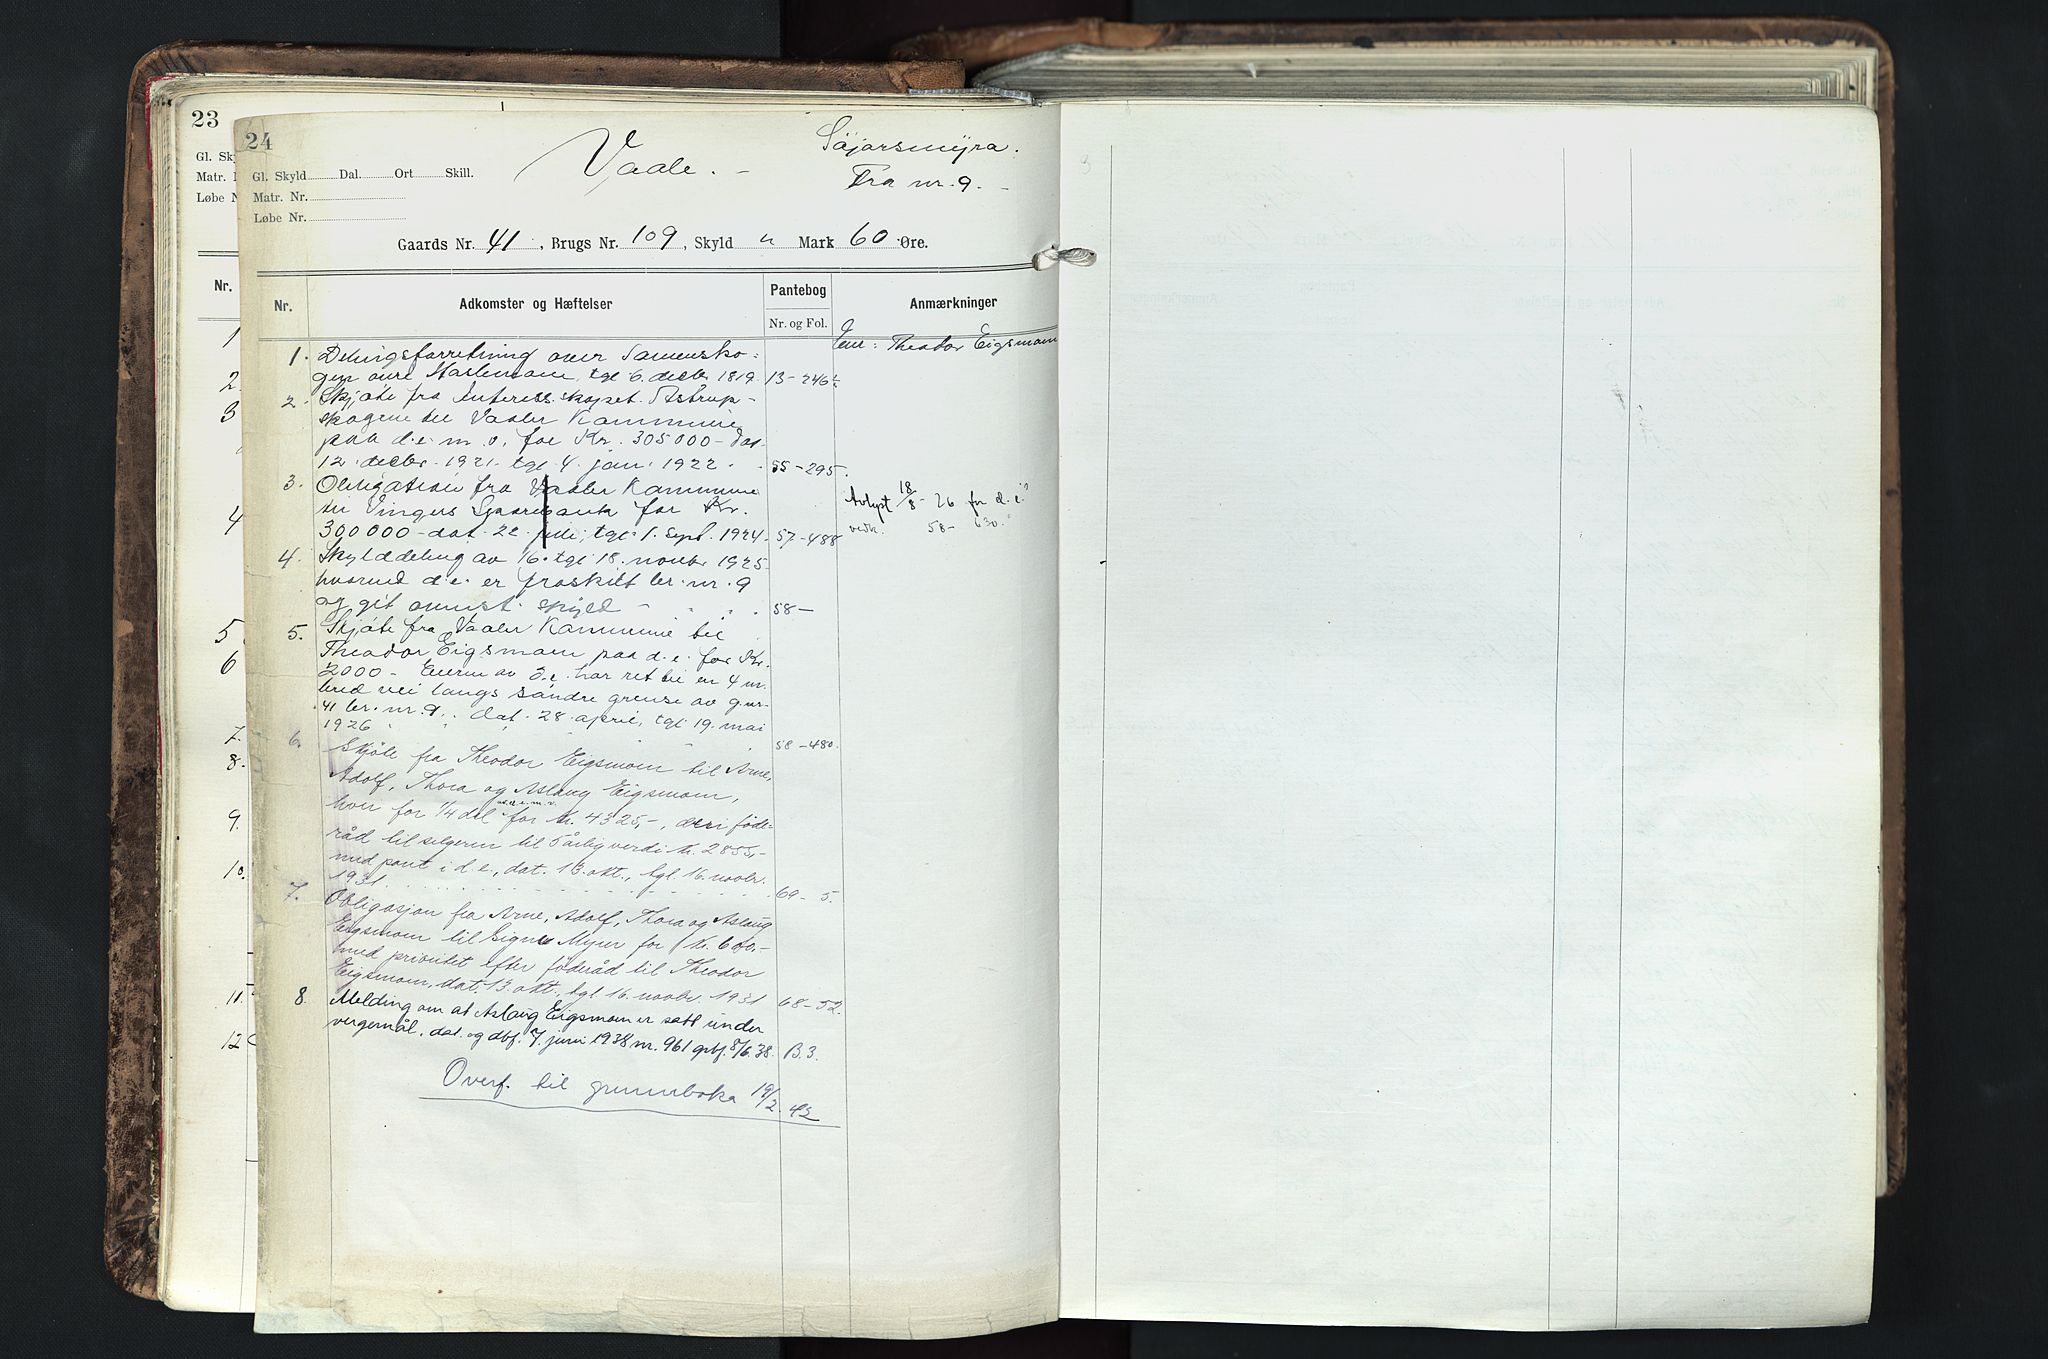 23
24
Gl. Sky
Matr. N
Løbe N
Nr.
1
2.
3
4
5
6
7.
8.
9.
10.
11.
12
Vaale. -
Søjarsmyra.
Fra nr. 9. -
Gl. Skyld Dal. Ort Skill.
Matr. Nr.
Løbe Nr.
Gaards Nr. 41, Brugs Nr. 109, Skyld " Mark 60 Øre.
Nr. Adkomster og Hæftelser Pantebog Anmærkninger
Nr. og Fol.
Eier: Theodor Eigsmoen
1. Delingsforretning over
tgl. 6. decbr. 1819. 13-246
2. Skjøte fra Interessskapet Astrup-
skogene til Vaaler Kommune
paa d.e. m.v. for Kr. 305000- dat.
12. decbr. 1921. tgl. 4. jan. 1922. 55-295.
3. Obligation fra Vaaler Kommune
til Vingers Sparebank for Kr.
300000 - dat. 22. juli, tgl. 1. sept. 1924. 57-488
Avlyst 18/8-26 for d.e.'s
vedk. 58- 630.
4. Skylddeling av 16. tgl. 18. novbr. 1925
hvorved d.e. er fraskilt br. nr. 9
og git anført skyld - 58-
5. Skjøte fra Vaaler Kommune til
Theodor Eigsmoen paa d.e. for Kr.
2000 - Eieren av d.e. har ret til en 4 m.
bred vei langs søndre grense av g.nr.
41 br. nr. 9. dat. 28. april, tgl. 19. mai
1926 58-480.
6. Skjøte fra Theodor Eigsmoen til Arne,
Adolf, Thora og Aslaug Eigsmoen,
hver for 1/4 del av d.e. m.v. for kr. 4325,-, deri føde-
råd til selgeren til 5 årlig verdi kr. 2855,-
med pant i d.e., dat. 13. okt., tgl. 16. novbr.
1931. 69-5.
7. Obligasjon fra Arne, Adolf, Thora og Aslaug
Eigsmoen til Signe Myrer for kr. 600,-
med prioritet efter føderåd til Theodor
Eigsmoen, dat. 13. okt., tgl. 16. novbr. 1931 68-52.
8. Melding om at Aslaug Eigsmoen er satt under
vergemål, dat. og dbf. 7. juni 1938 nr. 961 grbf. 8/6.38. B.3.
Overf. til grunnboka 19/2 42